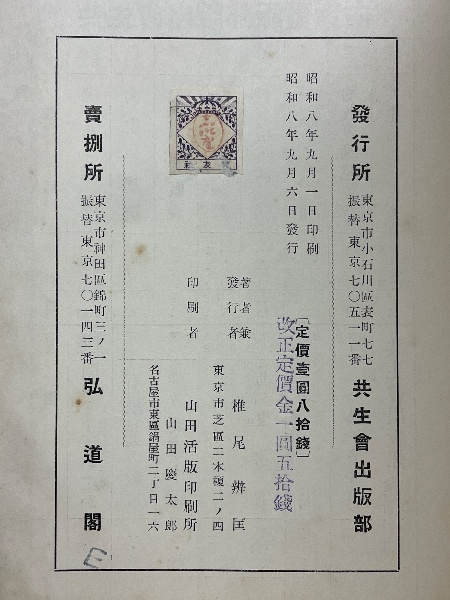 發行所
東京市小石川區表町七七
振替東京七〇五一一番
共生會出版部
昭和八年九月一日印刷
昭和八年九月六日發行
〔定價壹圓八拾錢〕
改正定價金一圓五拾錢
著者兼
發行者
椎尾辨匡
東京市芝區二本榎二ノ四
印刷者
山田活版印刷所
山田慶太郎
名古屋市東區鍋屋町二丁目一六
賣捌所
東京市神田區錦町三ノ一
振替東京七〇一四三番
弘道閣
E